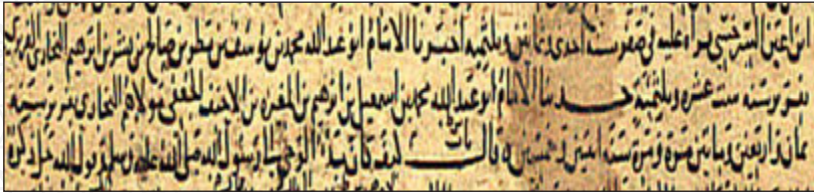 ابن اعين السرخسي قراة عليه في صفر سنة احدى وثمانين وثلثمية اخبرنا الامام ابو عبد الله محمد بن يوسف بن مطر بن صالح بن بشر بن ابرهيم البخاري الفربري
بفربر سنة ست عشرة وثلثمية حدثنا الامام ابو عبد الله محمد بن اسمعيل بن ابرهيم بن المغيرة بن الاحنف الجعفي مولاهم البخاري بفربر سنة
ثمان واربعين وماتين ومرة سنة اثنين وخمسين قال باب كيف كان بدء الوحي الى رسول الله صلى الله عليه وسلم وقول الله جل ذكره